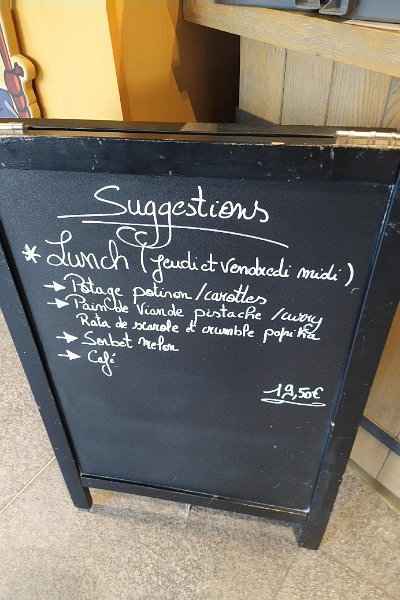 Suggestions
* Lunch (jeudi et vendredi midi)
→ Potage potiron / carottes
→ Pain de viande pistache / curry
Rata de scarole et crumble paprika
→ Sorbet melon
→ Café
19,50€